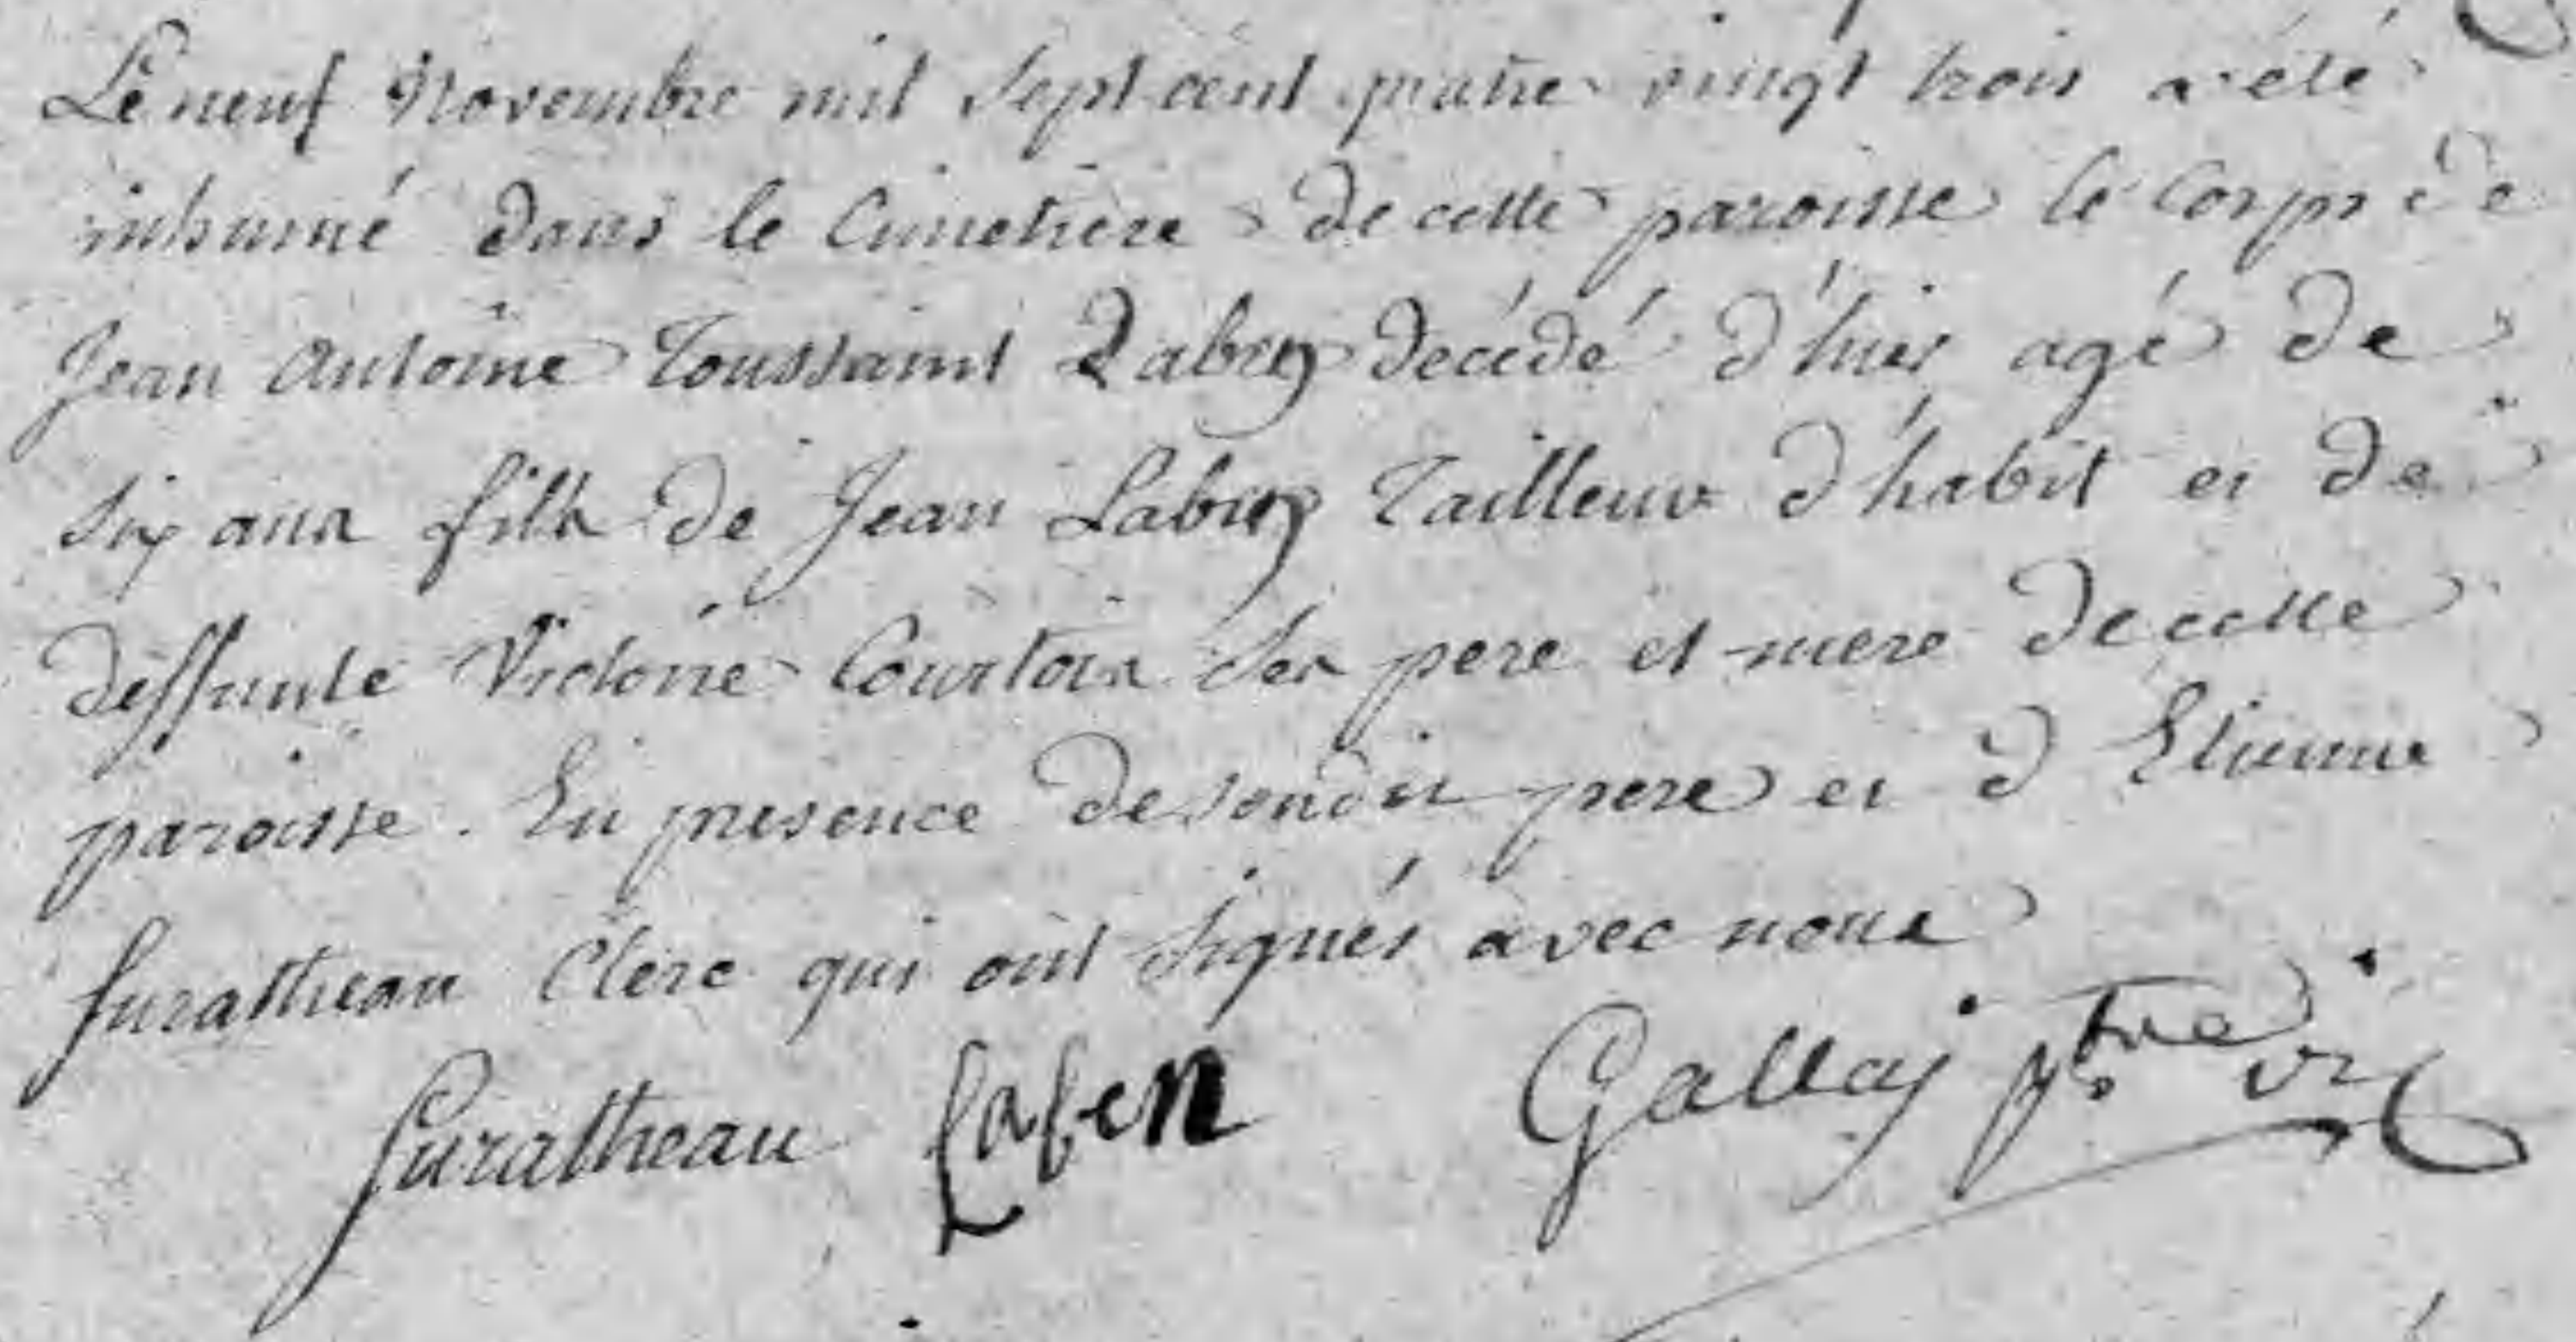 Le neuf Novembre mil sept cent quatre vingt trois a été
inhumé dans le Cimetiere de cette paroisse le corps de
Jean Antoine Toussaint décédé d'hier agé de
Six ans fils de Jean Tailleur d'habit et de
deffunte Victoire Courtois Ses pere et mere de cette
paroisse. En presence de sondit pere et d'Etienne
Curattheau Clerc qui ont signés avec nous
Curattheau Gallay ptre vic